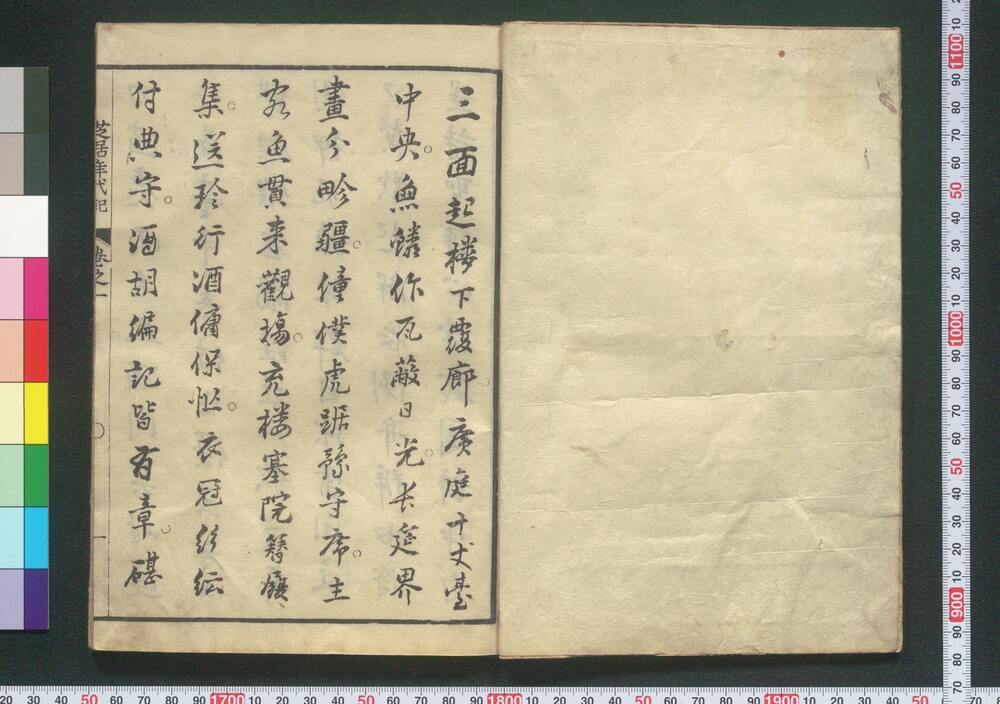 三面起樓下覆廊。廣庭十丈臺
中央。魚鱗作瓦蔽日光。長筵界
畫分畛疆。僮僕虎踞豫守席。主
客魚貫来觀場。充樓塞院簪履
集。送珍行酒傭保忙。衣冠紛紜
付典守。酒胡編記皆有章。
芝居年代記
卷之一
一